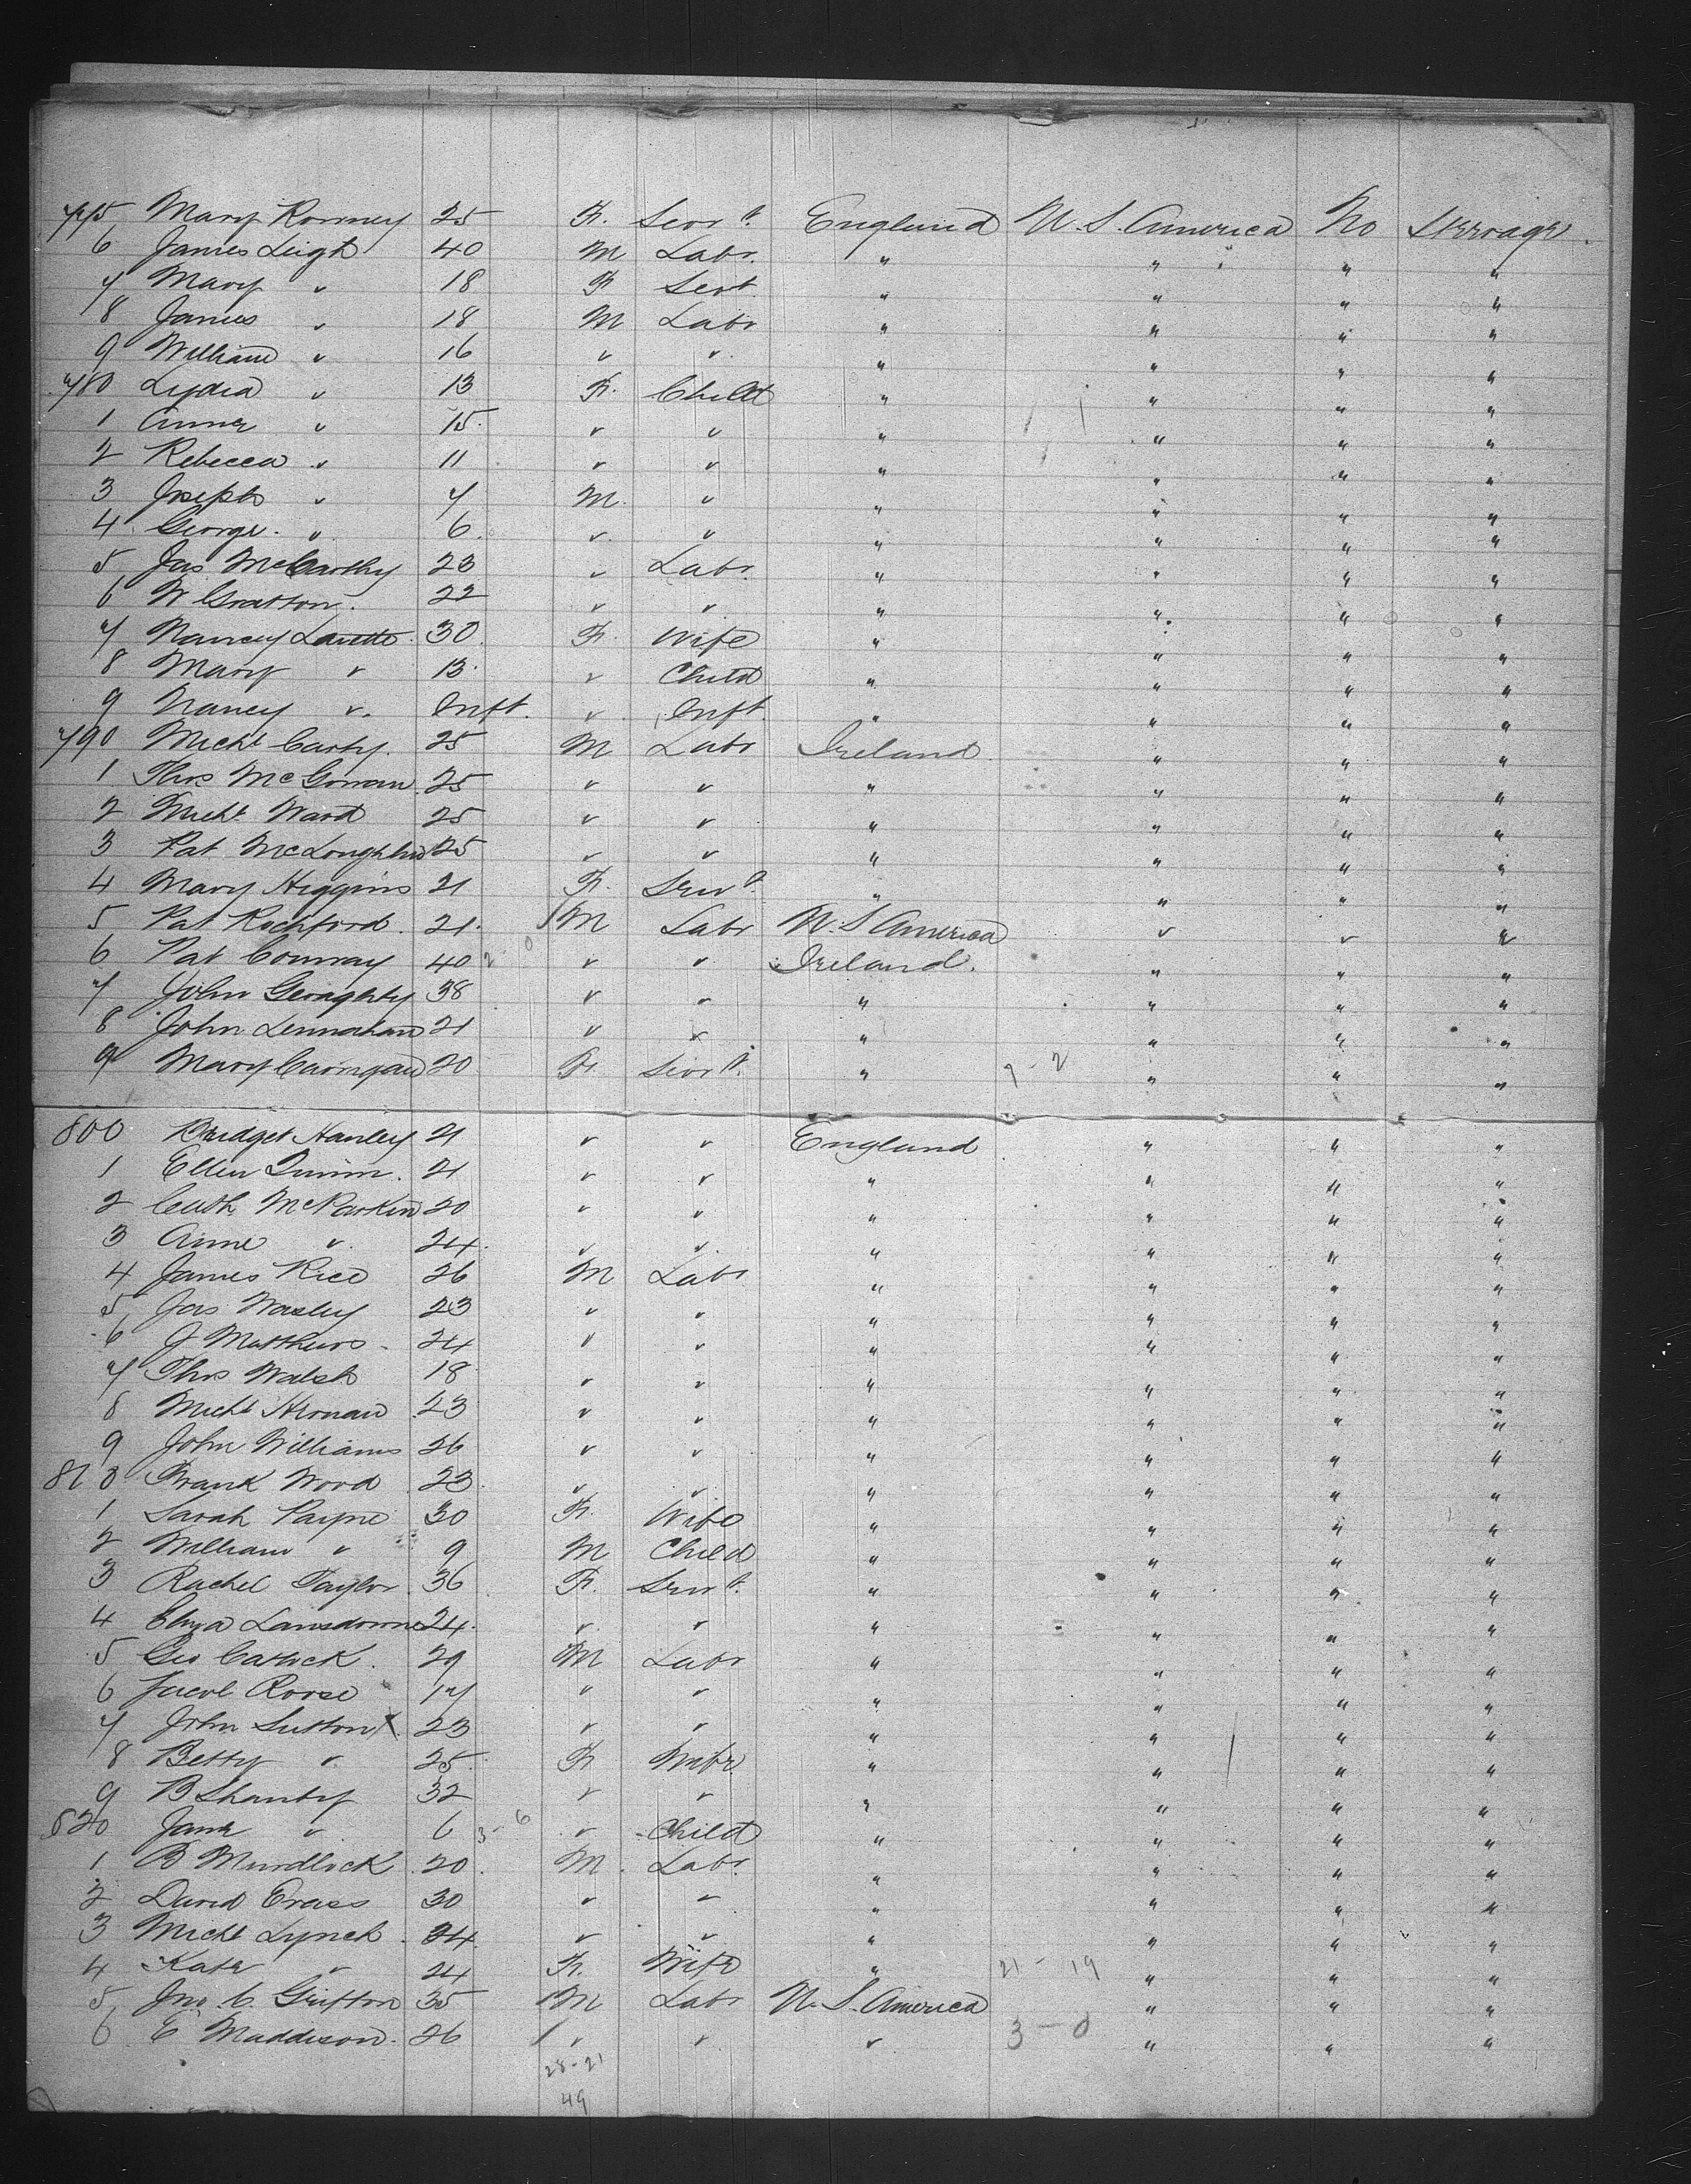 775 Mary Romney 25 F. Servt. England U.S. America No Steerage.
6 James Leigh 40 M Labr. " " " "
7 Mary v 18 F Servt. " " " "
8 James v 18 M Labr " " " "
9 William v 16 v v " " " "
780 Lydia v 13 F. Child " " " "
1 Anna v 15 v v " " " "
2 Rebecca v 11 v v " " " "
3 Joseph v 7 M. v " " " "
4 George v 6 v v " " " "
5 Jas McCarthy 23 v Labr. " " " "
6 W Gratton. 22 v v " " " "
7 Nancy 30 F. Wife " " " "
8 Mary v 13 v Child " " " "
9 Nancy v Inft. v Inft. " " " "
790 Michl Carty. 25 M Labr Ireland " " "
1 Thos McGowan 25 v v " " " "
2 Michl Ward 25 v v " " " "
3 Pat McLoughlin 25 v v " " " "
4 Mary Higgins 21 F. Servt. " " " "
5 Pat Rochford. 21. M Labr U.S America v v v
6 Pat Conway 40 2-0 v v Ireland. " " "
7 John Geraghty 38 v v " " " "
8 John Lennahan 21 v v " " " "
9 Mary 20 F Servt. " 9-2 " " "
800 Bridget Hanley 21 v v England " " "
1 Ellen Quinn. 21 v v " " " "
2 Cath McParkin 20 v v " " " "
3 Anne v 24. v v " " " "
4 James Rice 26 M Labr " " " "
5 Jas Wasley 23 v v " " " "
6 J Matthews 24 v v " " " "
7 Thos Walsh 18 v v " " " "
8 Michl 23 v v " " " "
9 John Williams 26 v v " " " "
810 Frank Wood 23 v v " " " "
1 Sarah Payne 30 F. Wife " " " "
2 William v 9 M Child " " " "
3 Rachel Taylor 36 F. Servt. " " " "
4 Eliza Lansdowne 24. v v " " " "
5 Geo 29 M Labr " " " "
6 Jacob Roose 17 v v " " " "
7 John Sutton X 23 v v " " " "
8 Betty v 25 F Wife " " " "
9 B Shanty 32 v v " " " "
820 Jane v 6 3-6 v Child " " " "
1 B Murdlock 20 M. Labr. " " " "
2 David 30 v v " " " "
3 Michl Lynch 24 v v " " " "
4 Kate v 24 F. Wife " 21-19 " " "
5 Jno. C. Grifton 35 M Labr U.S. America " " "
6 E Maddison. 26 v v v 3-0 " " "
28-21
49